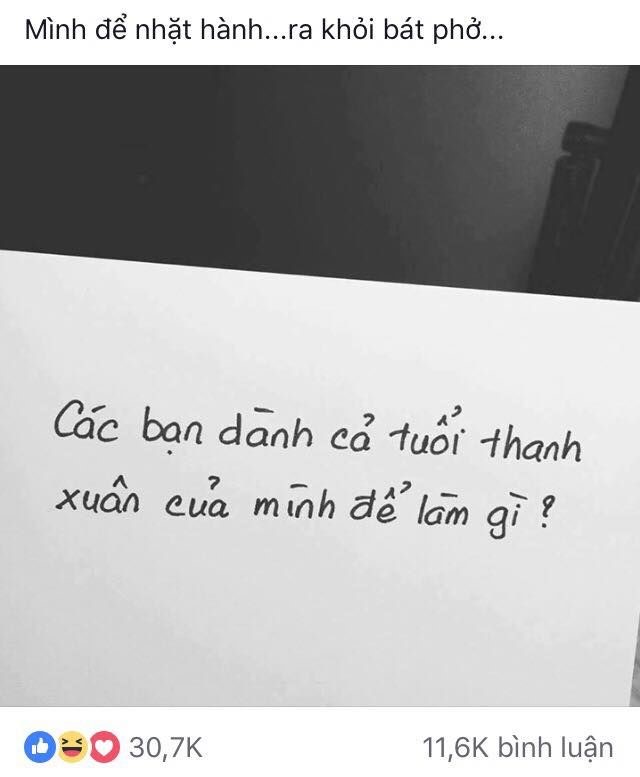 Mình để nhặt hành...ra khỏi bát phở...
Các bạn dành cả tuổi thanh
xuân của mình để làm gì ?
30,7K
11,6K bình luận